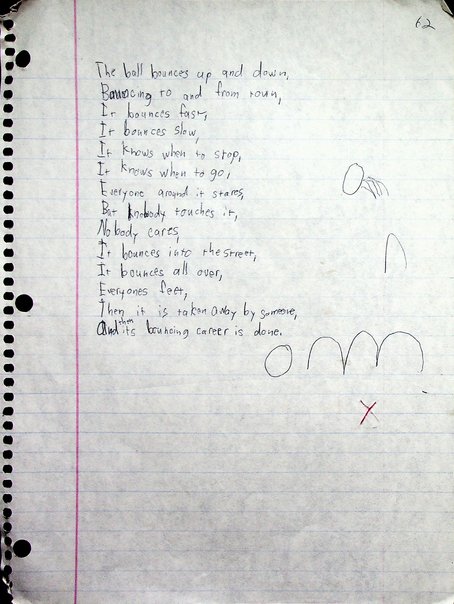 62
The ball bounces up and down,
Bouncing to and from town,
It bounces fast,
It bounces slow,
It knows when to stop,
It knows when to go,
Everyone around it stares,
But knobody touches it,
Nobody cares,
It bounces into the street,
It bounces all over,
Everyones feet,
Then it is taken away by someone,
And then its bouncing career is done.
X